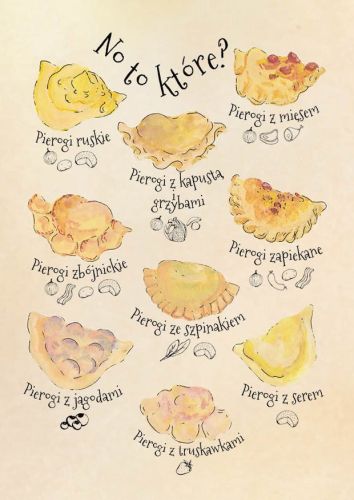 No to które?
Pierogi ruskie
Pierogi z mięsem
Pierogi z kapustą
i grzybami
Pierogi zbójnickie
Pierogi zapiekane
Pierogi ze szpinakiem
Pierogi z jagodami
Pierogi z serem
Pierogi z truskawkami